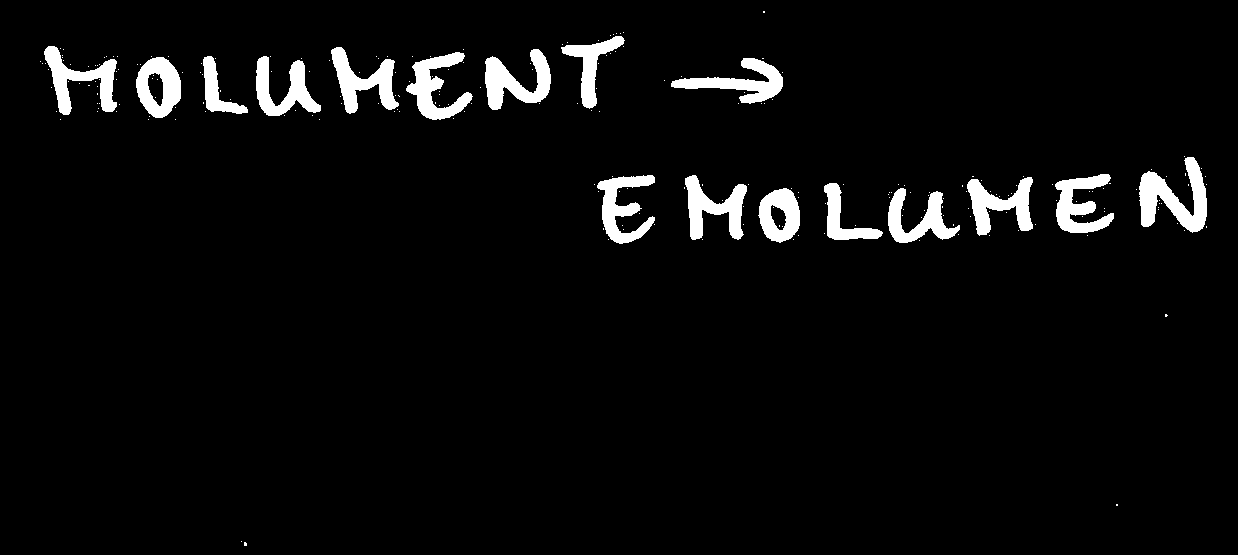 MOLUMENT →
EMOLUMEN